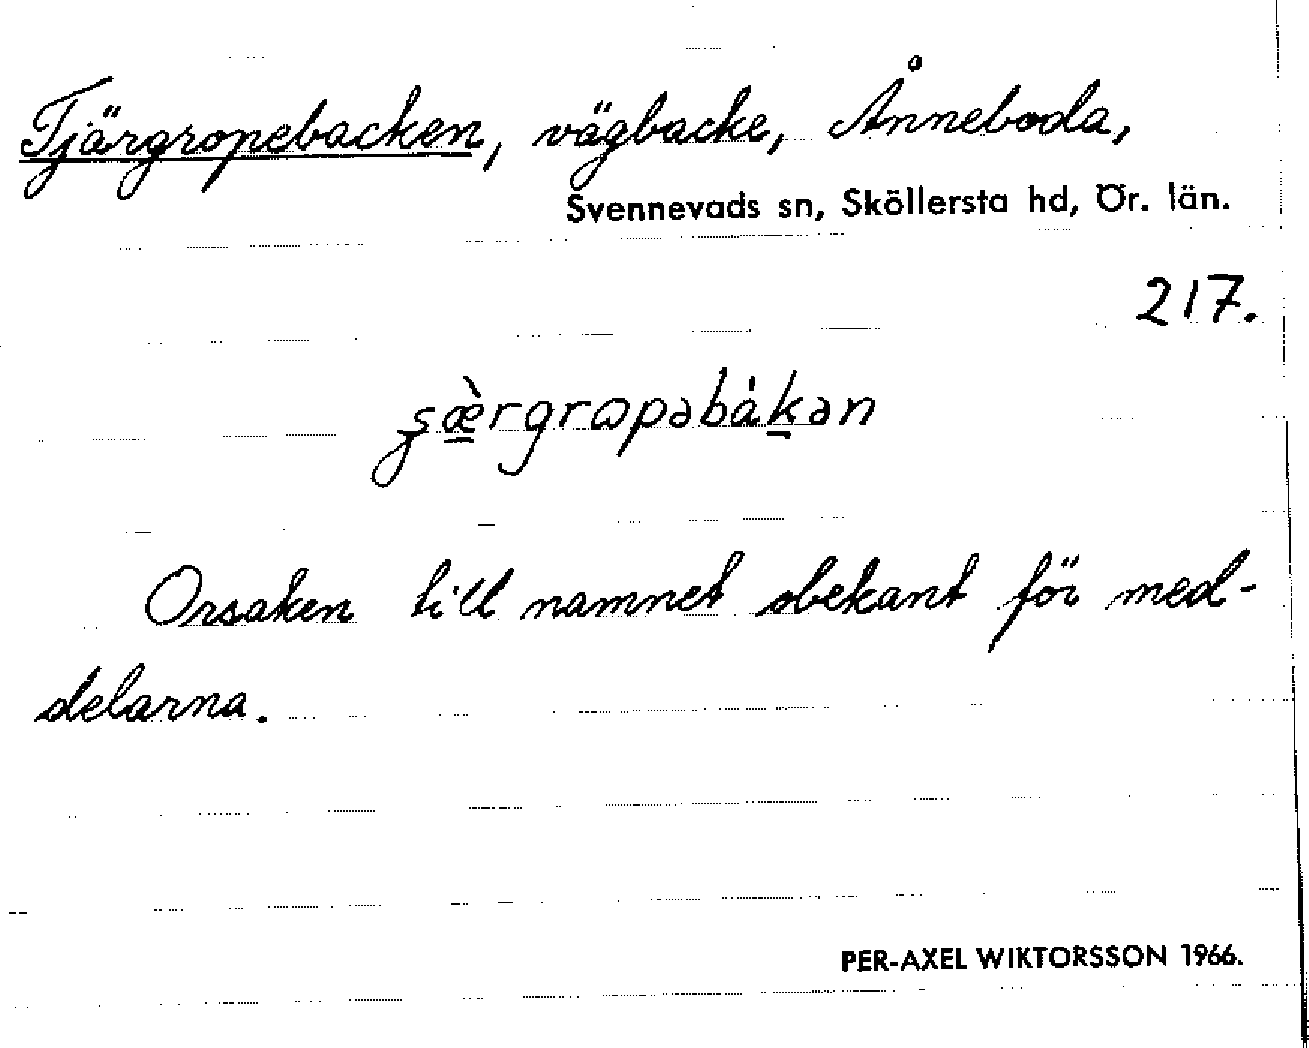 Tjärgropebacken, vägbacke, Ånneboda,
Svennevads sn, Sköllersta hd, Ör. län.
217.
ʂæ̀rgrɷpəbàkən
Orsaken till namnet obekant för med-
delarna.
PER-AXEL WIKTORSSON 1966.